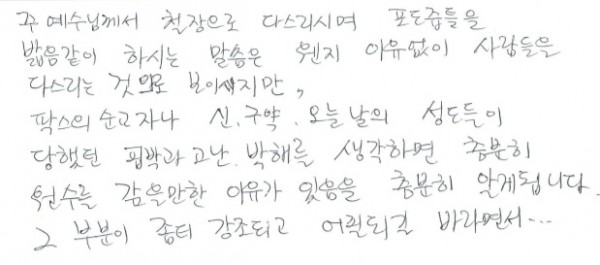 주 예수님께서 철장으로 다스리시며 포도즙틀을
밟음같이 하시는 말씀은 웬지 이유없이 사람들을
다스리는 것으로 보이지만,
팍스의 순교자나 신.구약.오늘날의 성도들이
당했던 핍박과 고난.박해를 생각하면 충분히
원수를 갚을만한 이유가 있음을 충분히 알게됩니다
그 부분이 좀더 강조되고 어필되길 바라면서....